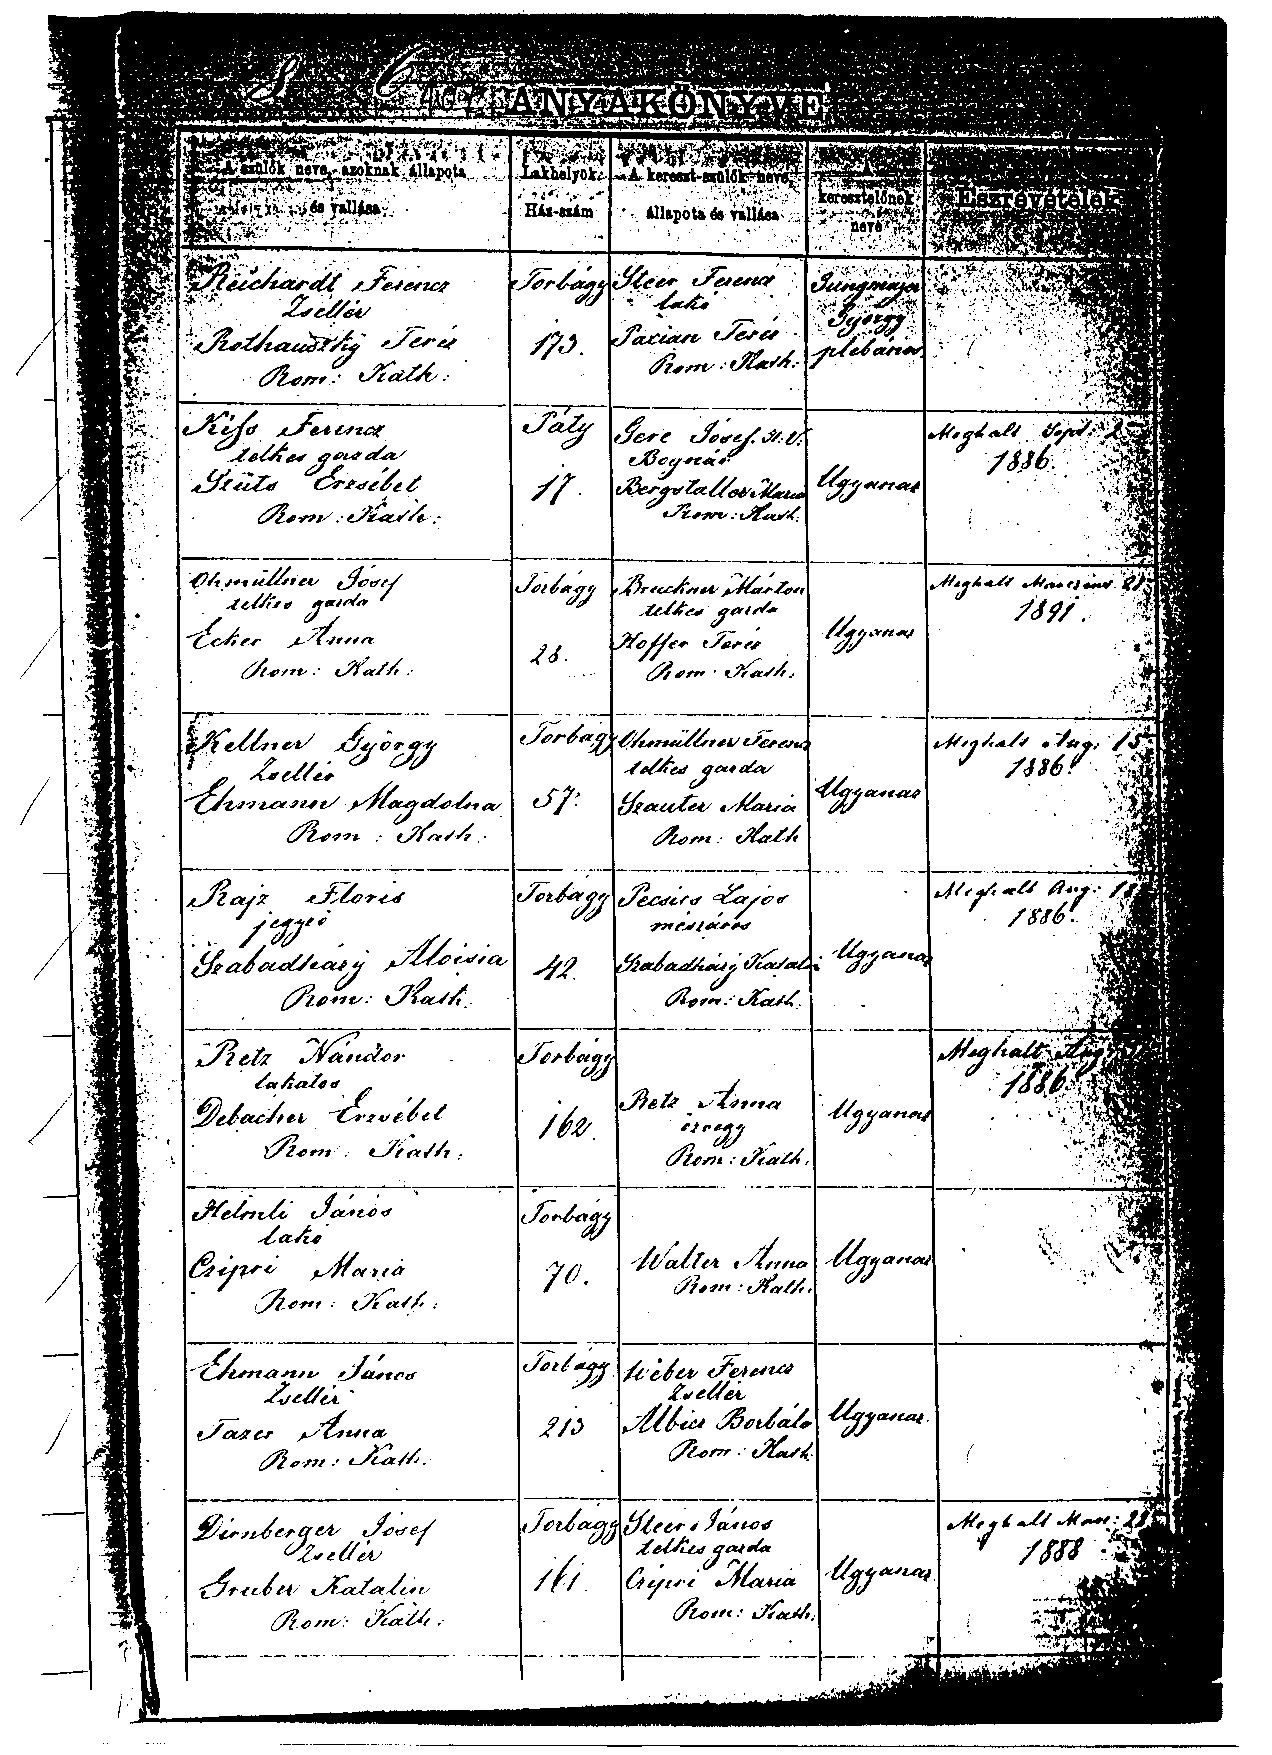 ANYAKÖNYVE
A szülők neve, azoknak állapota
és vallása
Lakhelyök
Ház-szám
A kereszt-szülők neve,
állapota és vallása
A
keresztelőnek
neve
Észrevételek
Reichardt Ferencz
Zsellér
Rothauszky Teréz
Rom: Kath:
Torbágy
173.
Steer Ferencz
lakó
Pacian Teréz
Rom: Kath:
Jungmajer
György
plébános
Kiss Ferencz
telkes gazda
Szüts Erzsébet
Rom: Kath:
Páty
17.
Gere Jósef
Bognár
Bergstaller Maria
Rom: Kath.
Ugyanaz
Meghalt Sept:
1886.
Ohmüllner Jósef
telkes gazda
Ecker Anna
Rom: Kath:
Torbágy
28.
Bruckner Márton
telkes gazda
Hoffer Teréz
Rom: Kath:
Ugyanaz
Meghalt Marczius 28
1891.
Kellner György
Zsellér
Ehmann Magdolna
Rom: Kath:
Torbágy
57.
Ohmüllner Ferencz
telkes gazda
Szauter Maria
Rom: Kath
Ugyanaz
Meghalt Aug. 15
1886.
Rajz Floris
jegyző
Szabadházy Aloisia
Rom: Kath.
Torbágy
42.
Pecsics Lajos
mészáros
Szabadházy Katalin
Rom: Kath.
Ugyanaz
Meghalt Aug: 18
1886.
Retz Nándor
lakatos
Debacher Erzsébet
Rom: Kath:
Torbágy
162.
Retz Anna
özvegy
Rom: Kath.
Ugyanaz
Meghalt Aug
1886.
Helmli János
lakó
Czipri Maria
Rom: Kath:
Torbágy
70.
Walter Anna
Rom: Kath:
Ugyanaz
Ehmann János
Zsellér
Tazer Anna
Rom: Kath:
Torbágy
213
Wéber Ferencz
Zsellér
Albier Borbála
Rom: Kath:
Ugyanaz
Dirnberger Jósef
Zsellér
Gruber Katalin
Rom: Kath:
Torbágy
161.
Steer János
telkes gazda
Czipri Maria
Rom: Kath:
Ugyanaz
Meghalt Marc: 28
1888